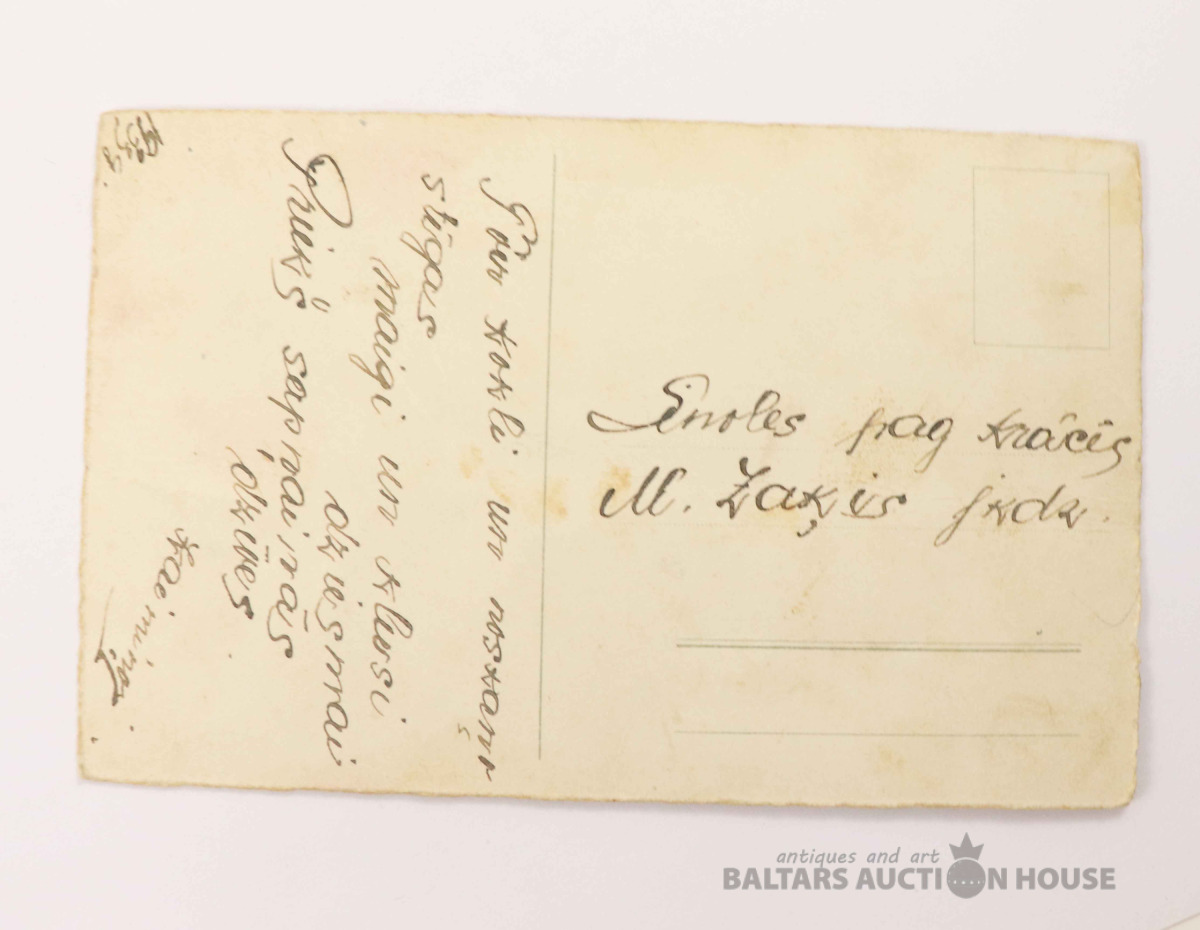 Pār kokli un noskaņo
stīgas
maigi un klusi
dziesmai
Priekš sapņainās
dzīves
Kaimiņa.
Sinoles pag Krācis
M. Zaķis jkdz.
antiques and art
BALTARS AUCTION HOUSE